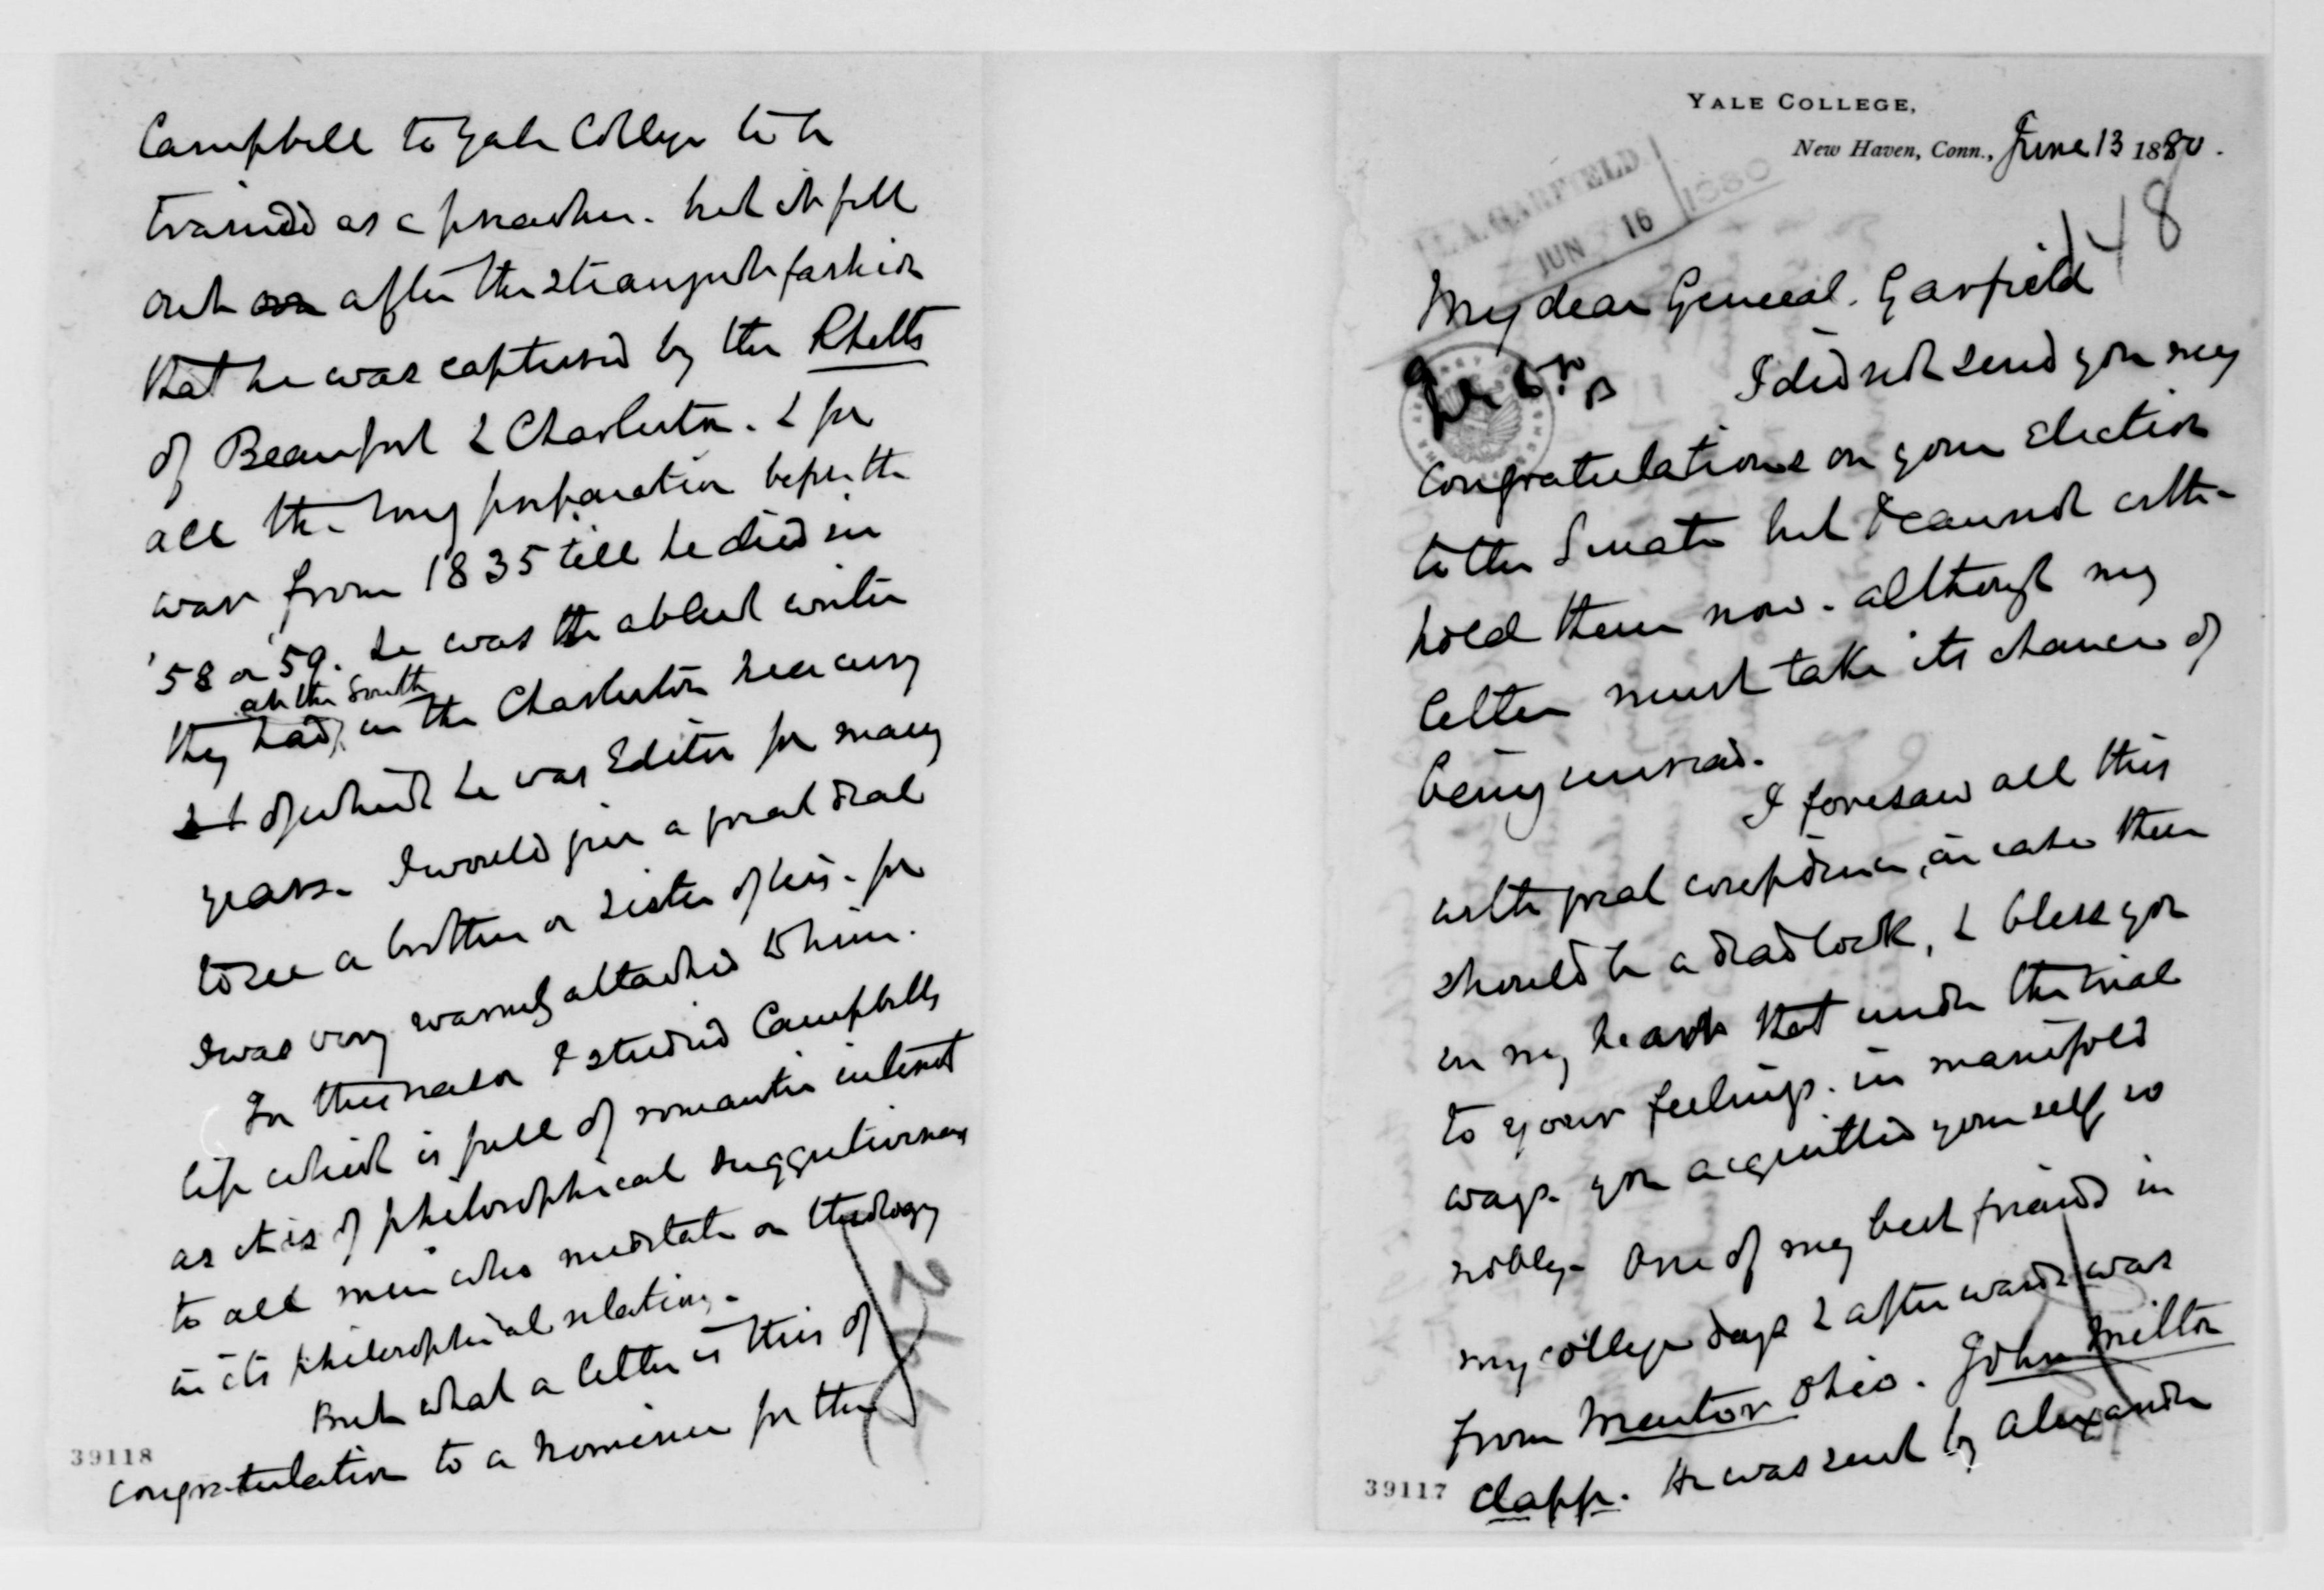 YALE COLLEGE,
New Haven, Conn., June 13 1880.
J. A. GARFIELD
JUN 16 1880
148
My dear General. Garfield
I did not send you my
congratulations on your election
to the Senate but I cannot with-
hold them now. although my
letter must take its chance of
being unread.
I foresaw all this
with great confidence, in case there
should be a dead lock, & bless you
in my heart that under the trial
to your feelings. in manifold
ways. you acquitted yourself so
nobly. One of my best friends in
my college days & afterwards was
from Mentor Ohio. John Milton
Clapp. He was sent by Alexander
39117
Campbell to Yale College to be
trained as a preacher. but it fell
out after the strangest fashion
that he was captured by the Rhetts
of Beaufort & Charleston. & for
all the long preparation before the
war from 1835 till he died in
'58 or '59. he was the ablest writer
at the South
they had, in the Charleston Mercury
of which he was Editor for many
years. I would give a great deal
to see a brother or sister of his. for
I was very warmly attached to him.
For this reason I studied Campbells
life which is full of romantic interest
as it is of philosophical suggestiveness
to all men who meditate on theology
in its philosophical relations.
But what a letter is this of
congratulation to a nominee for the
39118